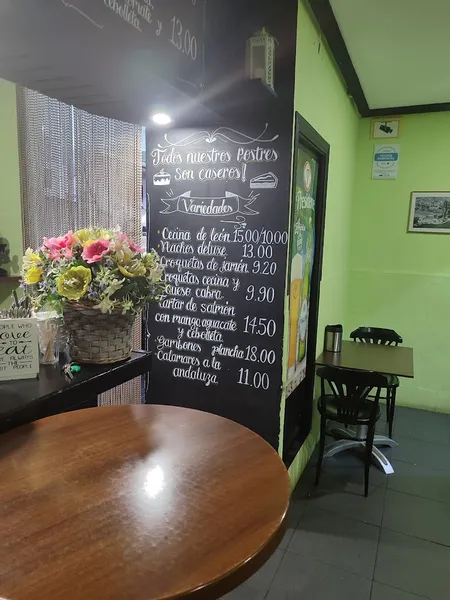 y
cebolleta
13.00
Todos nuestros Postres
Son caseros!
Variedades
Cecina de león 15.00/10.00
Nachos deluxe 13.00
Croquetas de jamón 9.20
Croquetas cecina y
queso cabra 9.90
Tartar de salmón
con mango aguacate
y cebolleta 14.50
Gambones plancha 18.00
Calamares a la
andaluza 11.00
PEOPLE WHO
love
TO
eat
ARE ALWAYS
THE BEST
PEOPLE